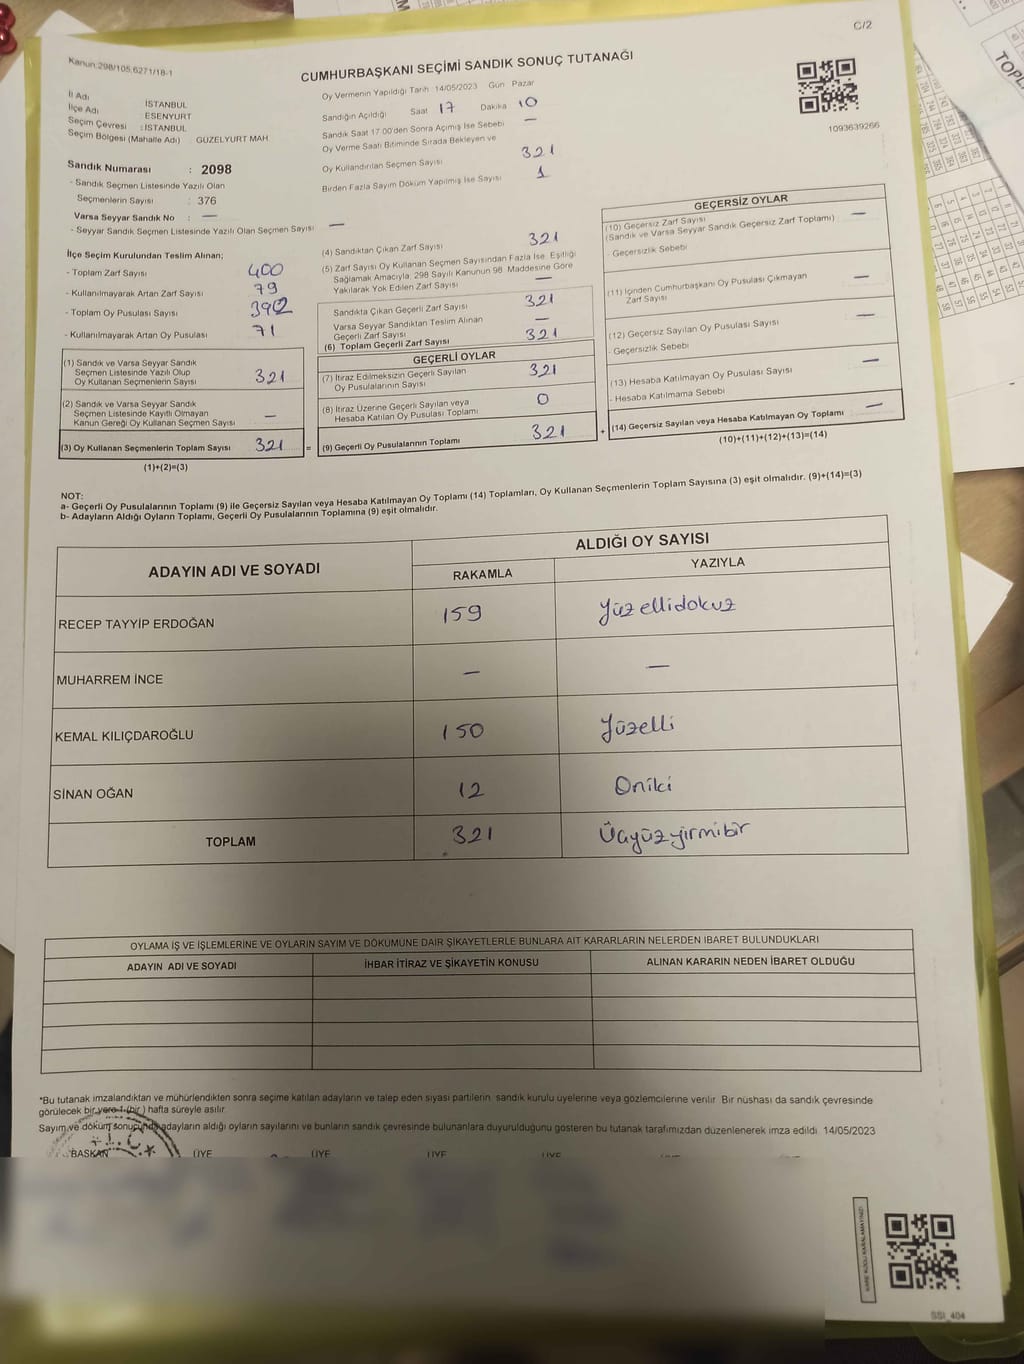 C/2
Kanun:298/105,6271/18-1
CUMHURBAŞKANI SEÇİMİ SANDIK SONUÇ TUTANAĞI
İl Adı İSTANBUL
İlçe Adı ESENYURT
Seçim Çevresi : İSTANBUL
Seçim Bölgesi (Mahalle Adı) GÜZELYURT MAH
Oy Vermenin Yapıldığı Tarih : 14/05/2023 Gün Pazar
Sandığın Açıldığı Saat 17 Dakika 10
Sandık Saat 17:00'den Sonra Açılmış İse Sebebi —
Oy Verme Saati Bitiminde Sırada Bekleyen ve
Oy Kullandırılan Seçmen Sayısı 321
Birden Fazla Sayım Döküm Yapılmış İse Sayısı 1
1093639266
Sandık Numarası : 2098
- Sandık Seçmen Listesinde Yazılı Olan
Seçmenlerin Sayısı : 376
Varsa Seyyar Sandık No : —
- Seyyar Sandık Seçmen Listesinde Yazılı Olan Seçmen Sayısı —
İlçe Seçim Kurulundan Teslim Alınan;
- Toplam Zarf Sayısı 400
- Kullanılmayarak Artan Zarf Sayısı 79
- Toplam Oy Pusulası Sayısı 392
- Kullanılmayarak Artan Oy Pusulası 71
(1) Sandık ve Varsa Seyyar Sandık
Seçmen Listesinde Yazılı Olup
Oy Kullanan Seçmenlerin Sayısı 321
(2) Sandık ve Varsa Seyyar Sandık
Seçmen Listesinde Kayıtlı Olmayan
Kanun Gereği Oy Kullanan Seçmen Sayısı —
(3) Oy Kullanan Seçmenlerin Toplam Sayısı 321 =
(1)+(2)=(3)
(4) Sandıktan Çıkan Zarf Sayısı 321
(5) Zarf Sayısı Oy Kullanan Seçmen Sayısından Fazla İse, Eşitliği
Sağlamak Amacıyla, 298 Sayılı Kanunun 98. Maddesine Göre
Yakılarak Yok Edilen Zarf Sayısı —
Sandıkta Çıkan Geçerli Zarf Sayısı 321
Varsa Seyyar Sandıktan Teslim Alınan
Geçerli Zarf Sayısı —
(6) Toplam Geçerli Zarf Sayısı 321
GEÇERLİ OYLAR
(7) İtiraz Edilmeksizin Geçerli Sayılan
Oy Pusulalarının Sayısı 321
(8) İtiraz Üzerine Geçerli Sayılan veya
Hesaba Katılan Oy Pusulası Toplamı 0
(9) Geçerli Oy Pusulalarının Toplamı 321 +
GEÇERSİZ OYLAR
(10) Geçersiz Zarf Sayısı
(Sandık ve Varsa Seyyar Sandık Geçersiz Zarf Toplamı) —
- Geçersizlik Sebebi
(11) İçinden Cumhurbaşkanı Oy Pusulası Çıkmayan
Zarf Sayısı —
(12) Geçersiz Sayılan Oy Pusulası Sayısı —
- Geçersizlik Sebebi
(13) Hesaba Katılmayan Oy Pusulası Sayısı —
- Hesaba Katılmama Sebebi
(14) Geçersiz Sayılan veya Hesaba Katılmayan Oy Toplamı —
(10)+(11)+(12)+(13)=(14)
NOT:
a- Geçerli Oy Pusulalarının Toplamı (9) ile Geçersiz Sayılan veya Hesaba Katılmayan Oy Toplamı (14) Toplamları, Oy Kullanan Seçmenlerin Toplam Sayısına (3) eşit olmalıdır. (9)+(14)=(3)
b- Adayların Aldığı Oyların Toplamı, Geçerli Oy Pusulalarının Toplamına (9) eşit olmalıdır.
ADAYIN ADI VE SOYADI
ALDIĞI OY SAYISI
RAKAMLA YAZIYLA
RECEP TAYYİP ERDOĞAN 159 Yüzellidokuz
MUHARREM İNCE — —
KEMAL KILIÇDAROĞLU 150 Yüzelli
SİNAN OĞAN 12 Oniki
TOPLAM 321 Üçyüzyirmibir
OYLAMA İŞ VE İŞLEMLERİNE VE OYLARIN SAYIM VE DÖKÜMÜNE DAİR ŞİKAYETLERLE BUNLARA AİT KARARLARIN NELERDEN İBARET BULUNDUKLARI
ADAYIN ADI VE SOYADI İHBAR İTİRAZ VE ŞİKAYETİN KONUSU ALINAN KARARIN NEDEN İBARET OLDUĞU
*Bu tutanak imzalandıktan ve mühürlendikten sonra seçime katılan adayların ve talep eden siyasi partilerin sandık kurulu üyelerine veya gözlemcilerine verilir. Bir nüshası da sandık çevresinde
görülecek bir yere 1 (bir) hafta süreyle asılır.
Sayım ve döküm sonucunda adayların aldığı oyların sayılarını ve bunların sandık çevresinde bulunanlara duyurulduğunu gösteren bu tutanak tarafımızdan düzenlenerek imza edildi. 14/05/2023
BAŞKAN ÜYE ÜYE ÜYE ÜYE
T.C.
KARE KODU KARALAMAYINIZ!
SSI_404